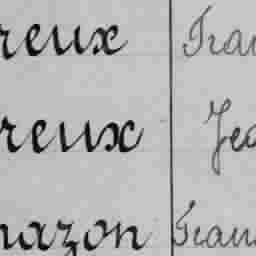 reux Fran
reux Jea
nazon Fran